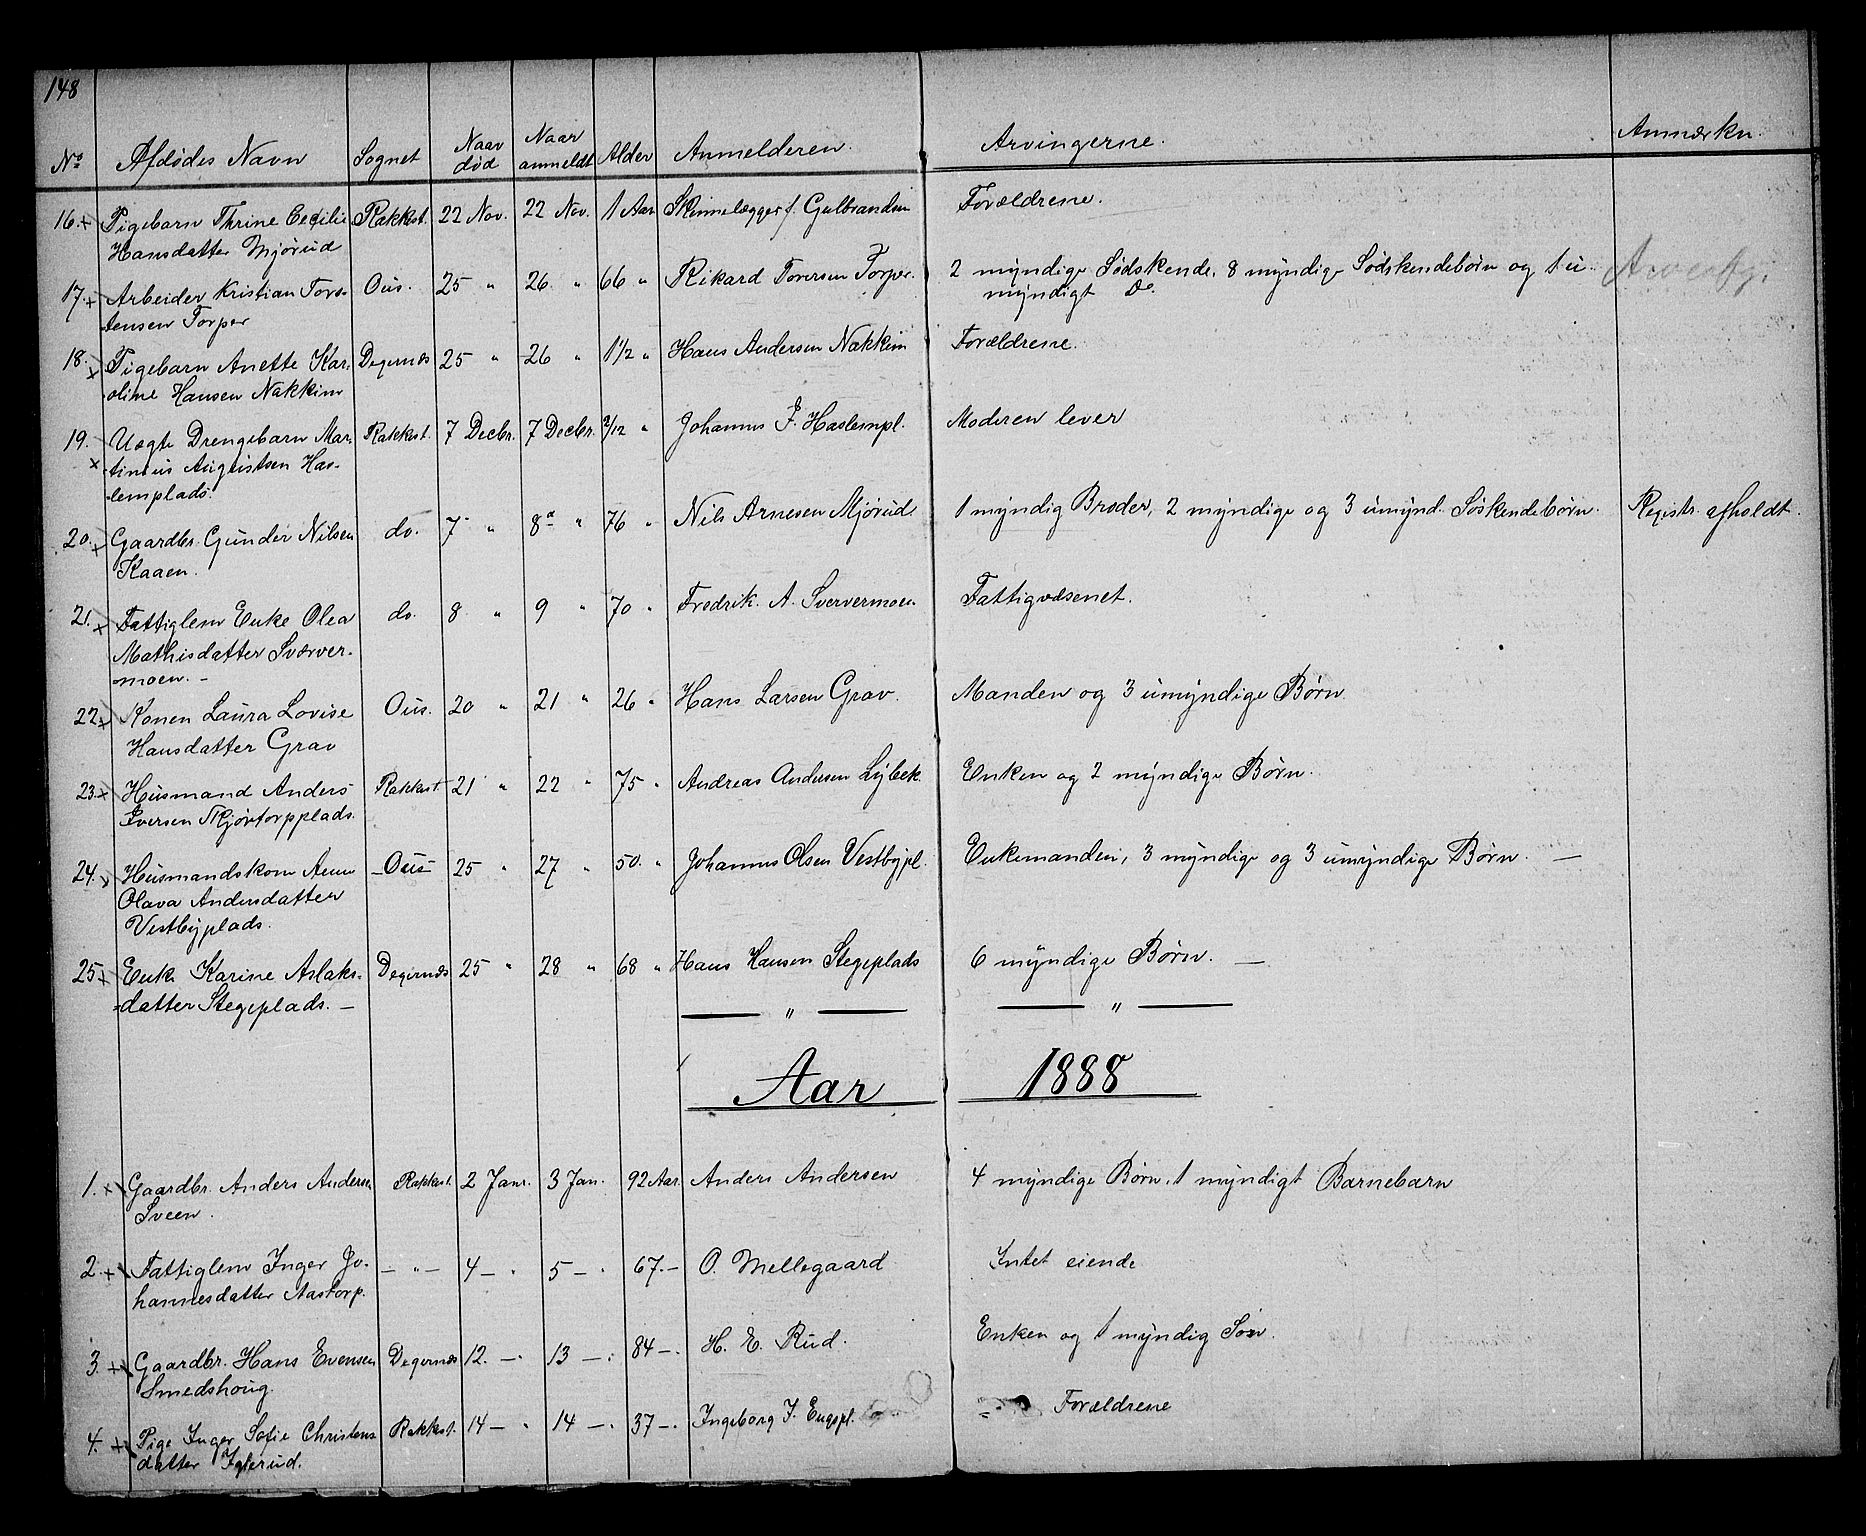 148
No Afdødes Navn Sognet Naar død Naar anmeldt Alder Anmelderen. Arvingerne. Anmærkn.
16. Pigebarn Thrine Cecilie Rakkest. 22 Nov. 22 Nov. 1 Aar Skinnelægger f. Gulbrandsen Forældrene.
Hansdatter Mjørud
17. Arbeider Kristian Tors- Ous. 25 " 26 " 66 " Rikard Torersen Torper. 2 myndige Sødskende, 8 myndige Sødskendebørn og 1 u-
tensen Torper myndigt Do.
18. Pigebarn Anette Kar- Degernæs 25 " 26 " 1 1/2 " Hans Andersen Nakkim Forældrene.
oline Hansen Nakkim
19. Uægte Drengebarn Mar- Rakkest. 7 Decbr. 7 Decbr. 2/12 " Johannes J. Haslempl. Moderen lever
tinius Augustsen Has-
lemplads.
20. Gaardbr. Gunder Nilsen do. 7 " 8 " 76 " Nils Arnesen Mjørud 1 myndig Broder, 2 myndige og 3 umynd. Søskendebørn. Registr. afholdt.
Kaaen.
21. Fattiglem Enke Olea do. 8 " 9 " 70 " Fredrik. A. Sververmoen Fattigvæsenet.
Mathisdatter Sværver-
moen. -
22. Konen Laura Lovise Ous. 20 " 21 " 26 " Hans Larsen Grav. Manden og 3 umyndige Børn
Hansdatter Grav
23. Husmand Anders Rakkest. 21 " 22 " 75 " Andreas Andersen Lybek. Enken og 2 myndige Børn.
Iversen Skjørtorpplads.
24. Husmandskone Anne - Ous - 25 " 27 " 50. " Johannes Olsen Vestbypl. Enkemanden, 3 myndige og 3 umyndige Børn. —
Olava Andersdatter
Vestbyplads.
25. Enk. Karine Aslaks- Degernæs 25 " 28 " 68 " Hans Hansen Stegeplads 6 myndige Børn. —
datter Stegeplads. —
— " — — " —
Aar 1888
1. Gaardbr. Anders Andersen Rakkest. 2 Janr. 3 Jan. 92 Aar. Anders Andersen 4 myndige Børn, 1 myndigt Barnebarn
Sveen.
2. Fattiglem Inger Jo- — " — 4 — " 5 — " 67. — O. Mellegaard Intet eiende
hannesdatter Aastorp.
3. Gaardbr. Hans Evensen Degernæs 12. — 13 — 84 — H. E. Rud. Enken og 1 myndig Søn.
Smedshoug.
4. Pige Inger Sofie Christens Rakkest. 14 — " 14 — 37 — Ingeborg J. Engspl. Forældrene
datter Iglerud.